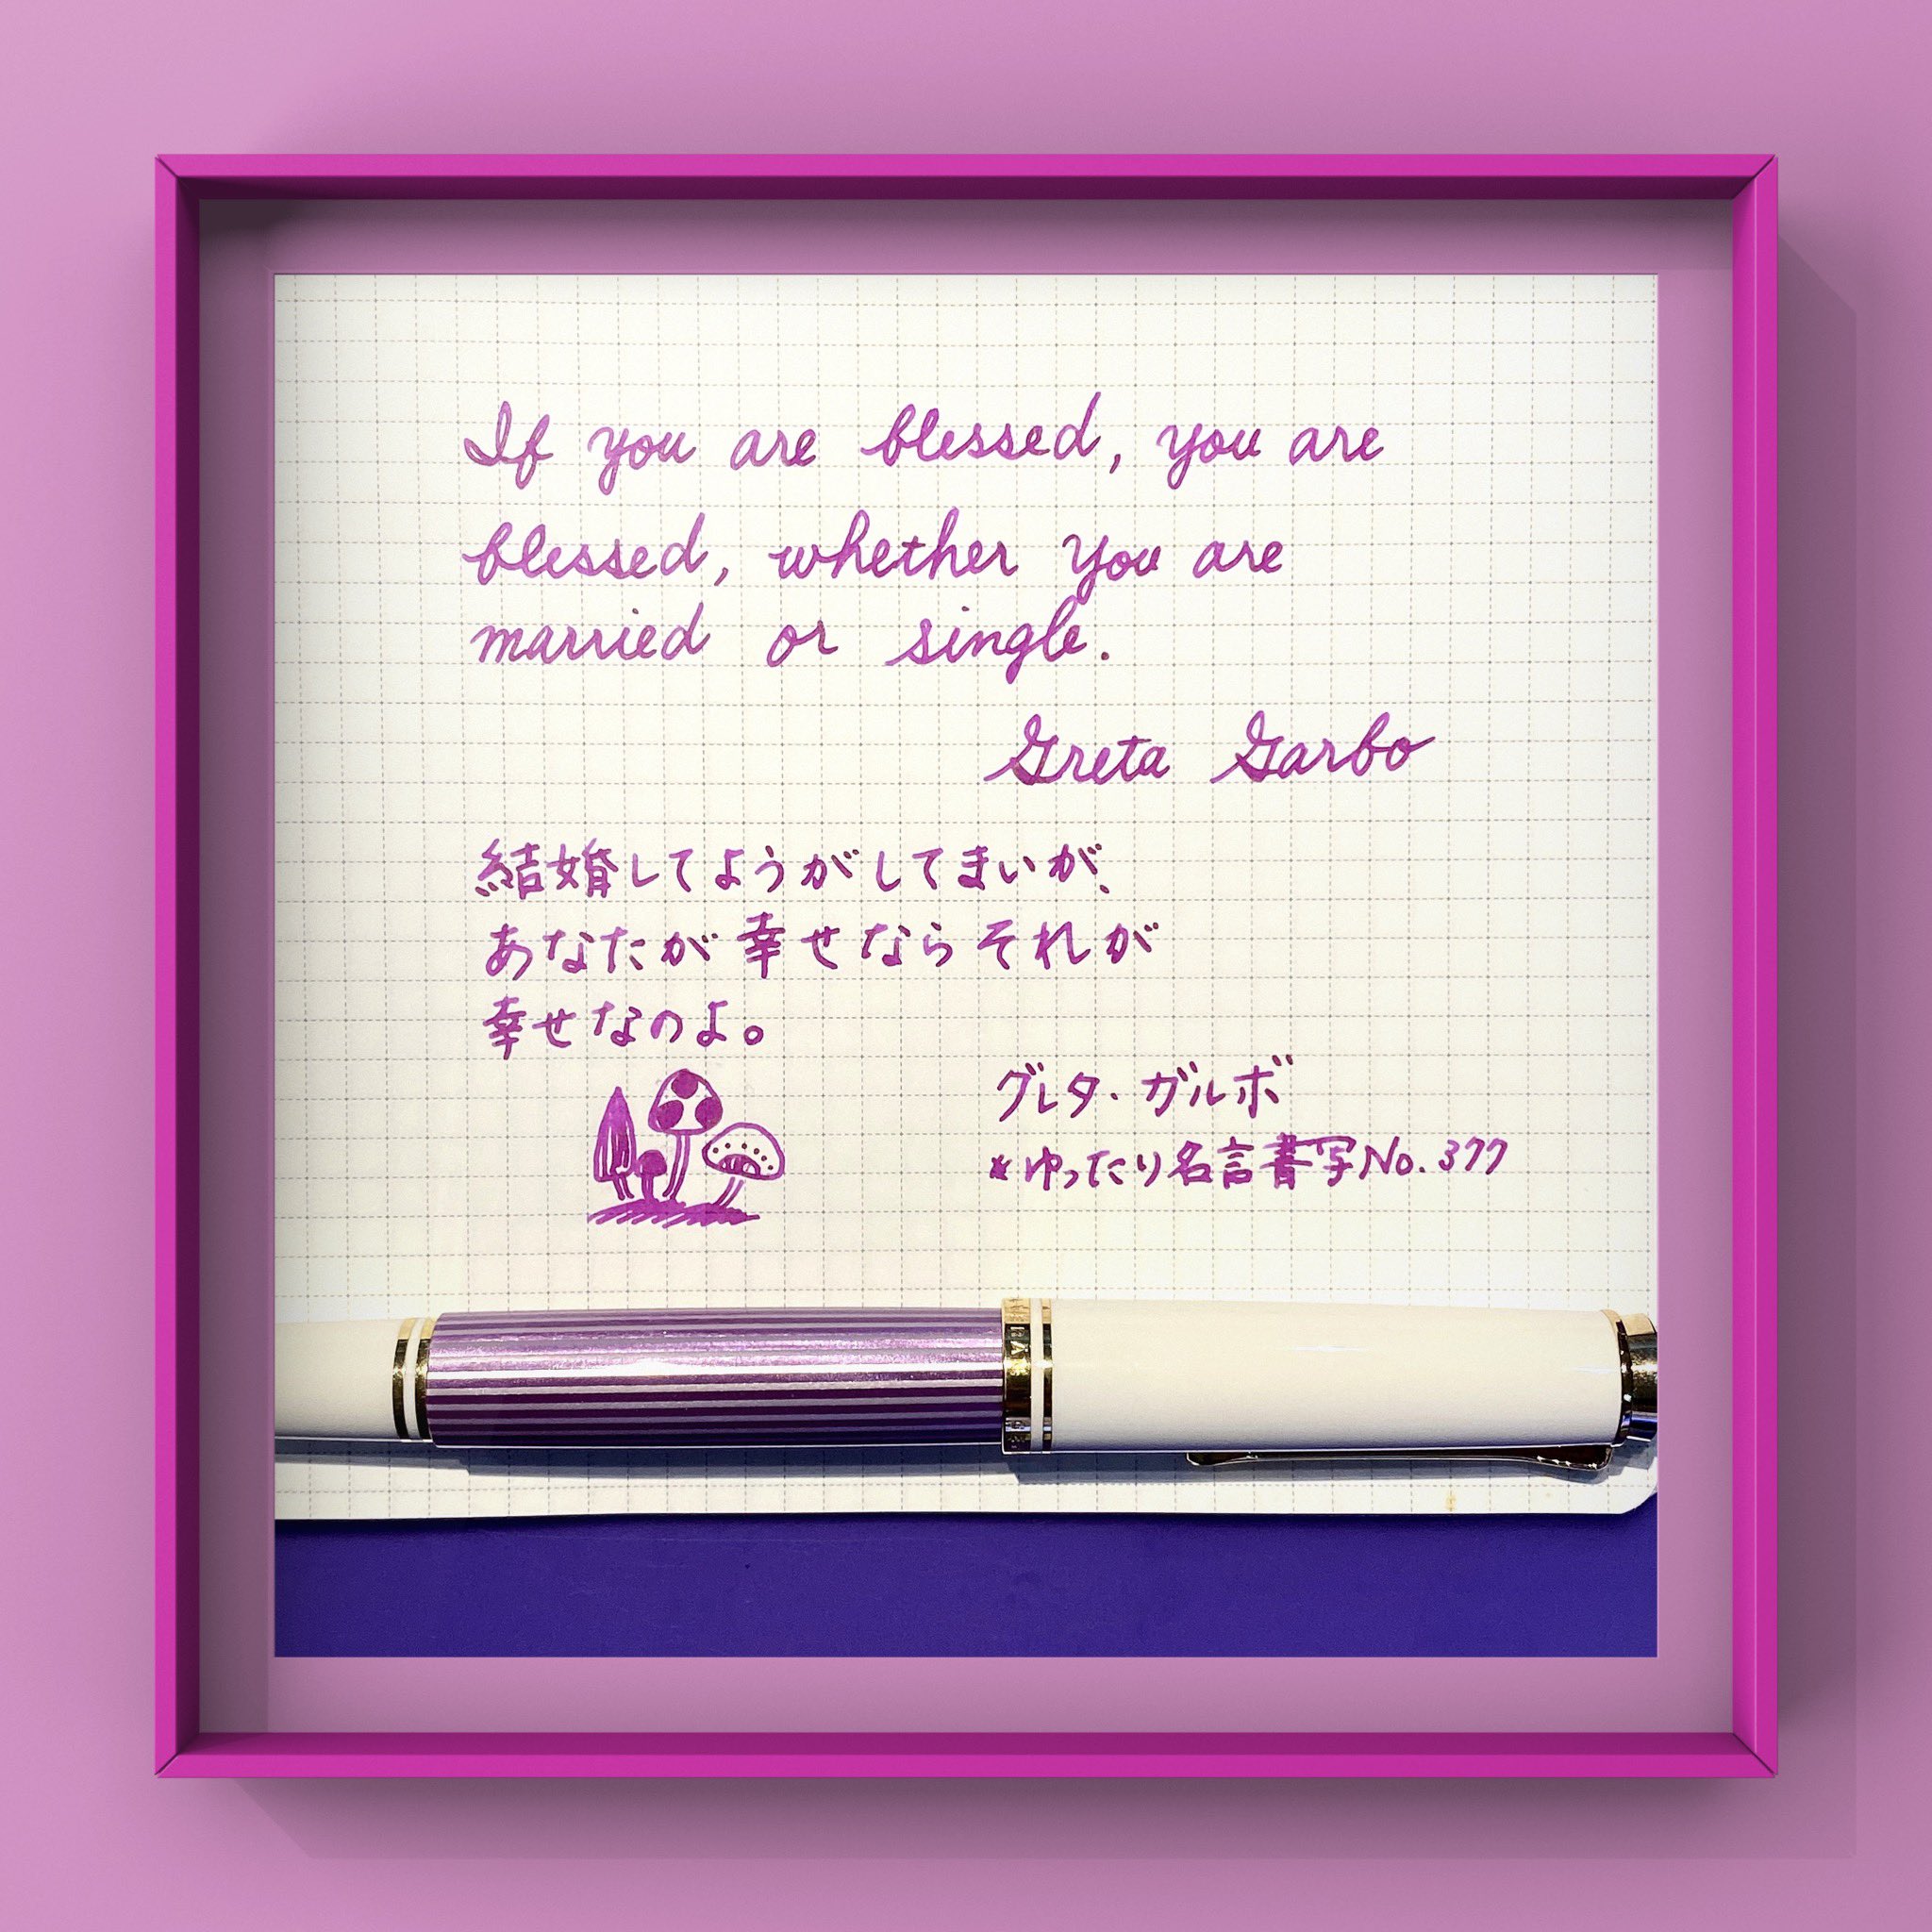 If you are blessed, you are
blessed, whether you are
married or single.
Greta Garbo
結婚してようがしてまいが、
あなたが幸せならそれが
幸せなのよ。
グレタ・ガルボ
*ゆったり名言書写No.377